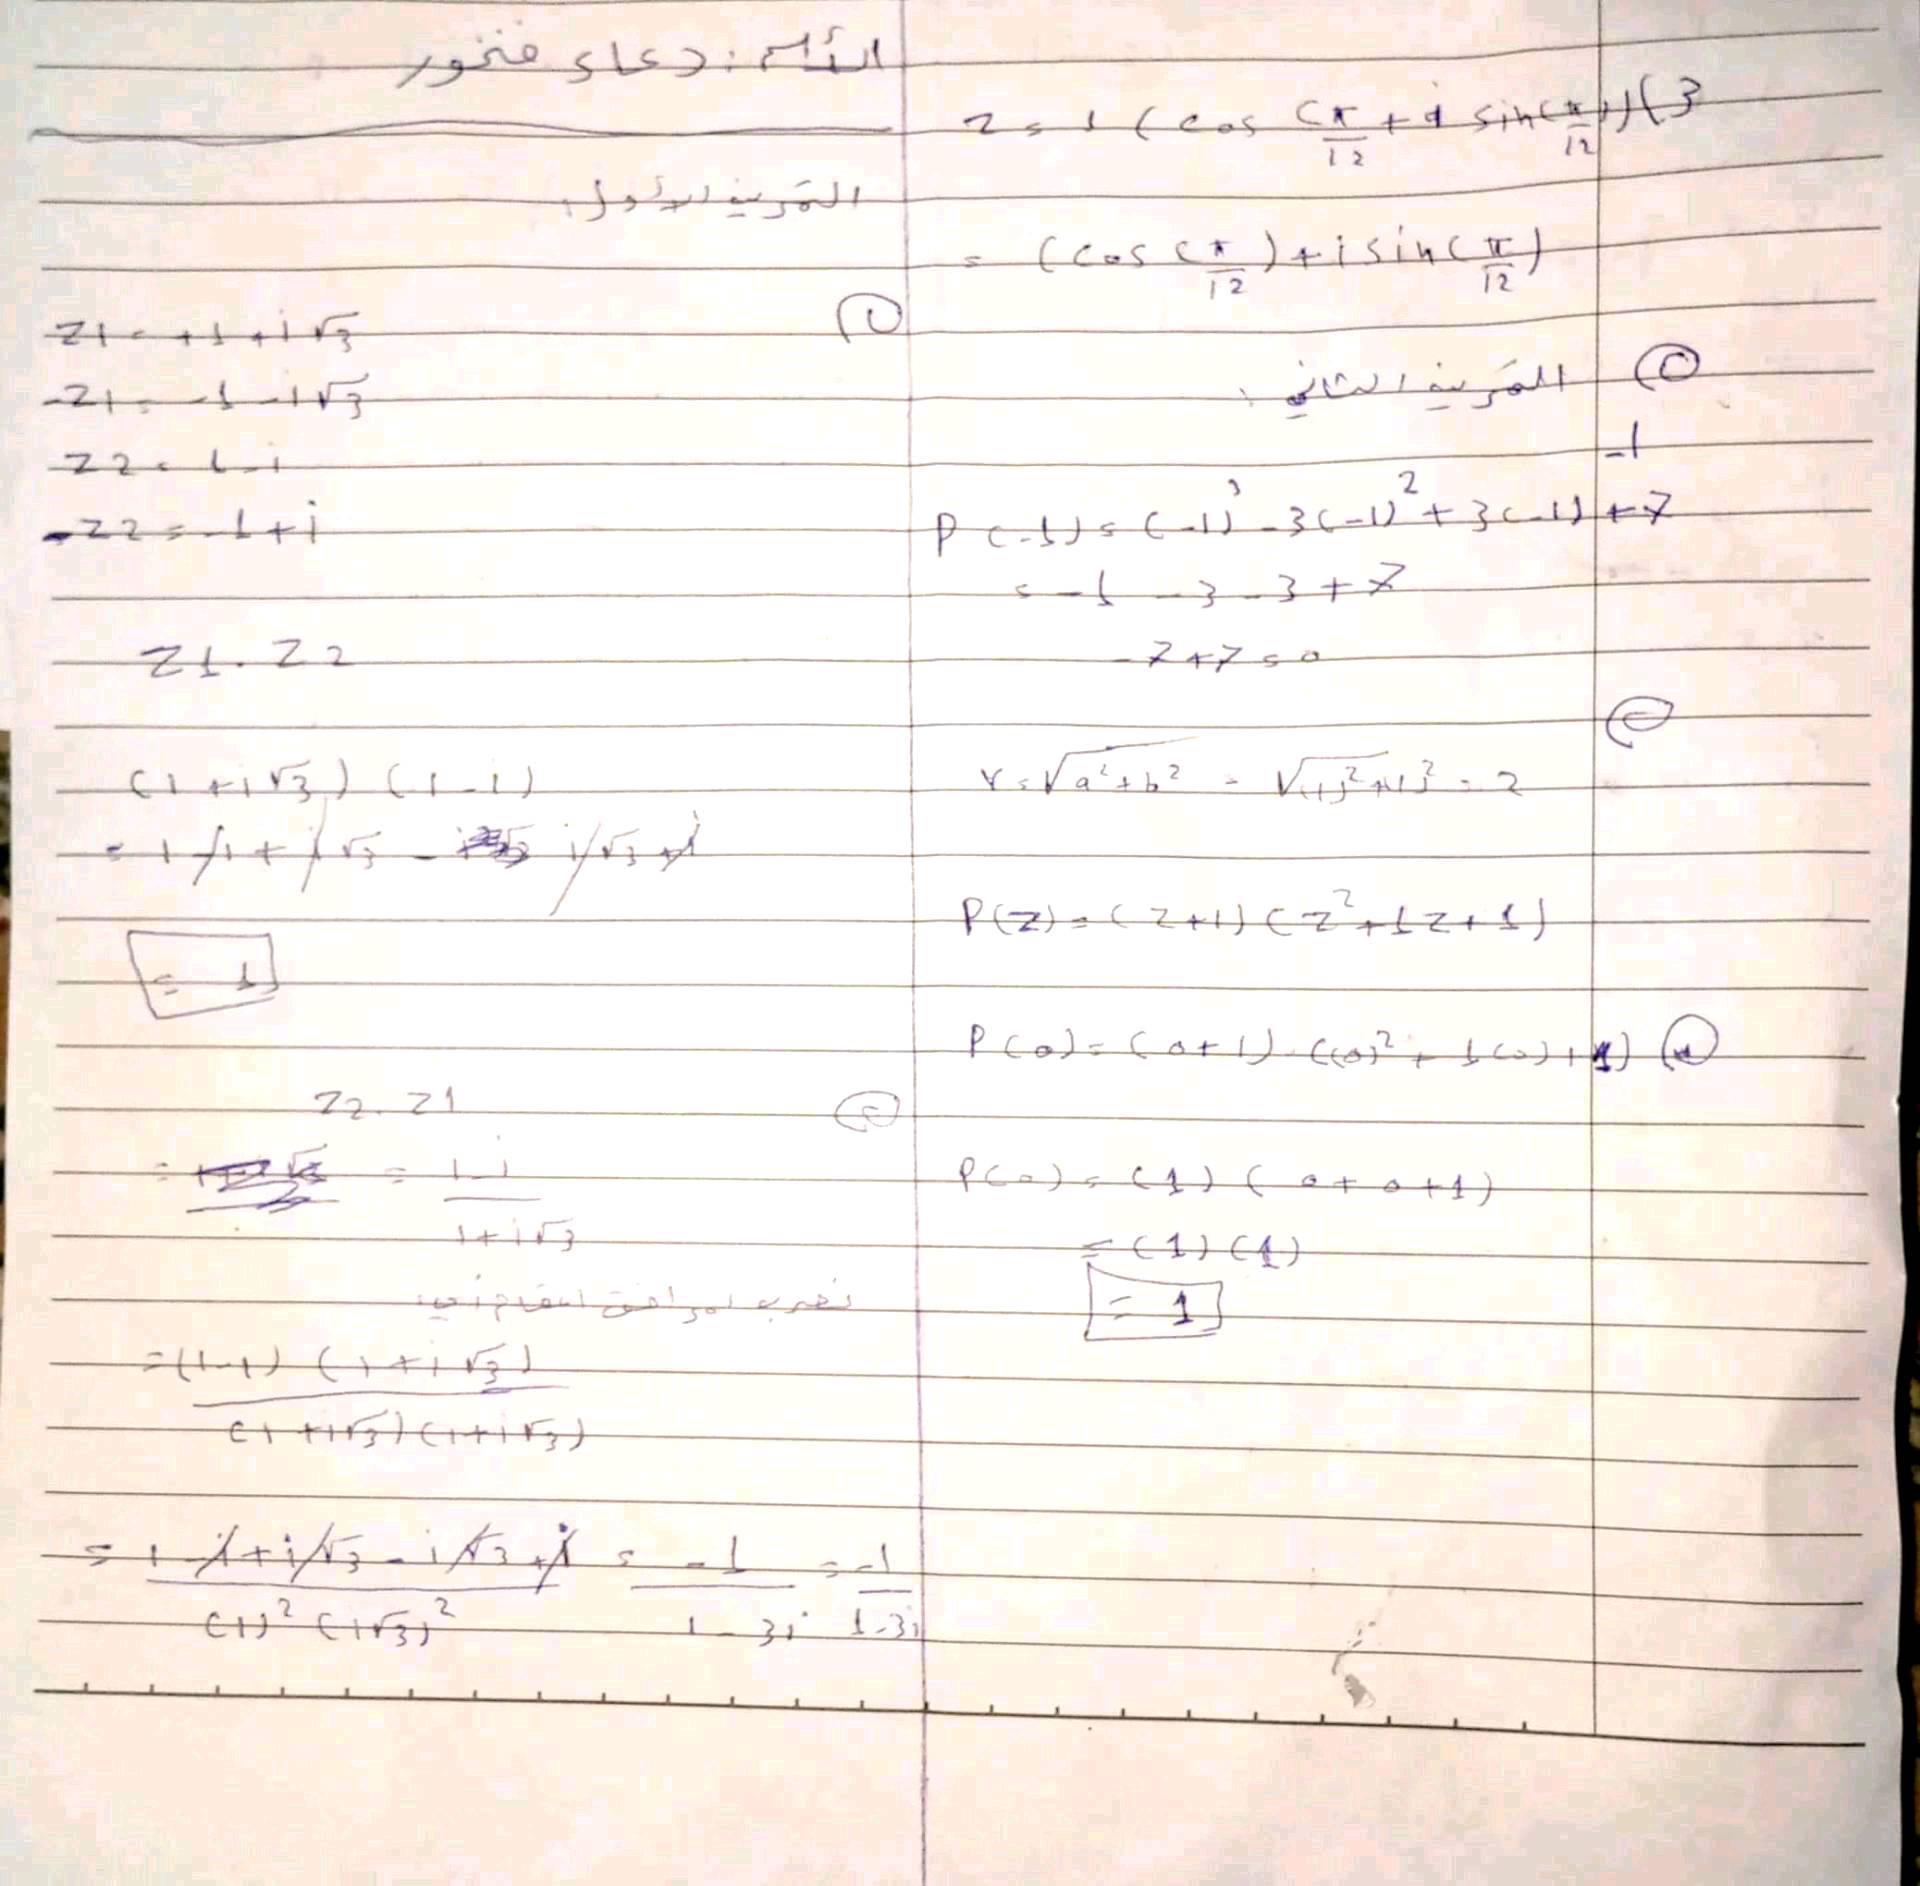 الأسم: دعاء فخور
التمرين الأول:
①
Z1 = +1 + i√3
-Z1 = -1 - i√3
Z2 = 1 - i
-Z2 = -1 + i
Z1 . Z2
(1 + i√3) (1 - i)
= 1 - i + i√3 - i√3 + i
= 1
Z2 . Z1
= 1 - i
1 + i√3
نضرب لمرافق المقام
= (1 - i) (1 + i√3)
(1 + i√3) (1 + i√3)
= 1 - i + i√3 - i√3 + i = -1 = -1
(1)² (i√3)² 1 - 3i 1 - 3i
Z = 1 (cos (π/12 + i sin(π/12)) (3
= (cos (π/12) + i sin (π/12)
التمرين الثاني:
-1
P(-1) = (-1)³ - 3(-1)² + 3(-1) + 7
= -1 - 3 - 3 + 7
-7 + 7 = 0
r = √a² + b² = √(1)² + 1)² = 2
P(Z) = (Z+1) (Z² + 1Z + 1)
P(0) = (0+1) . ((0)² + 1(0) + 1)
P(0) = (1) (0 + 0 + 1)
= (1) (1)
= 1